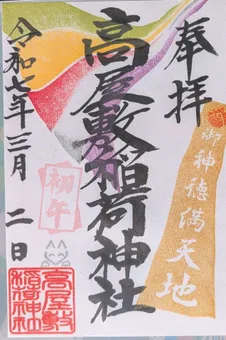 奉拝
御神穂満天地
高屋敷稲荷神社
初午
令和七年三月二日
高屋敷
稲荷神社